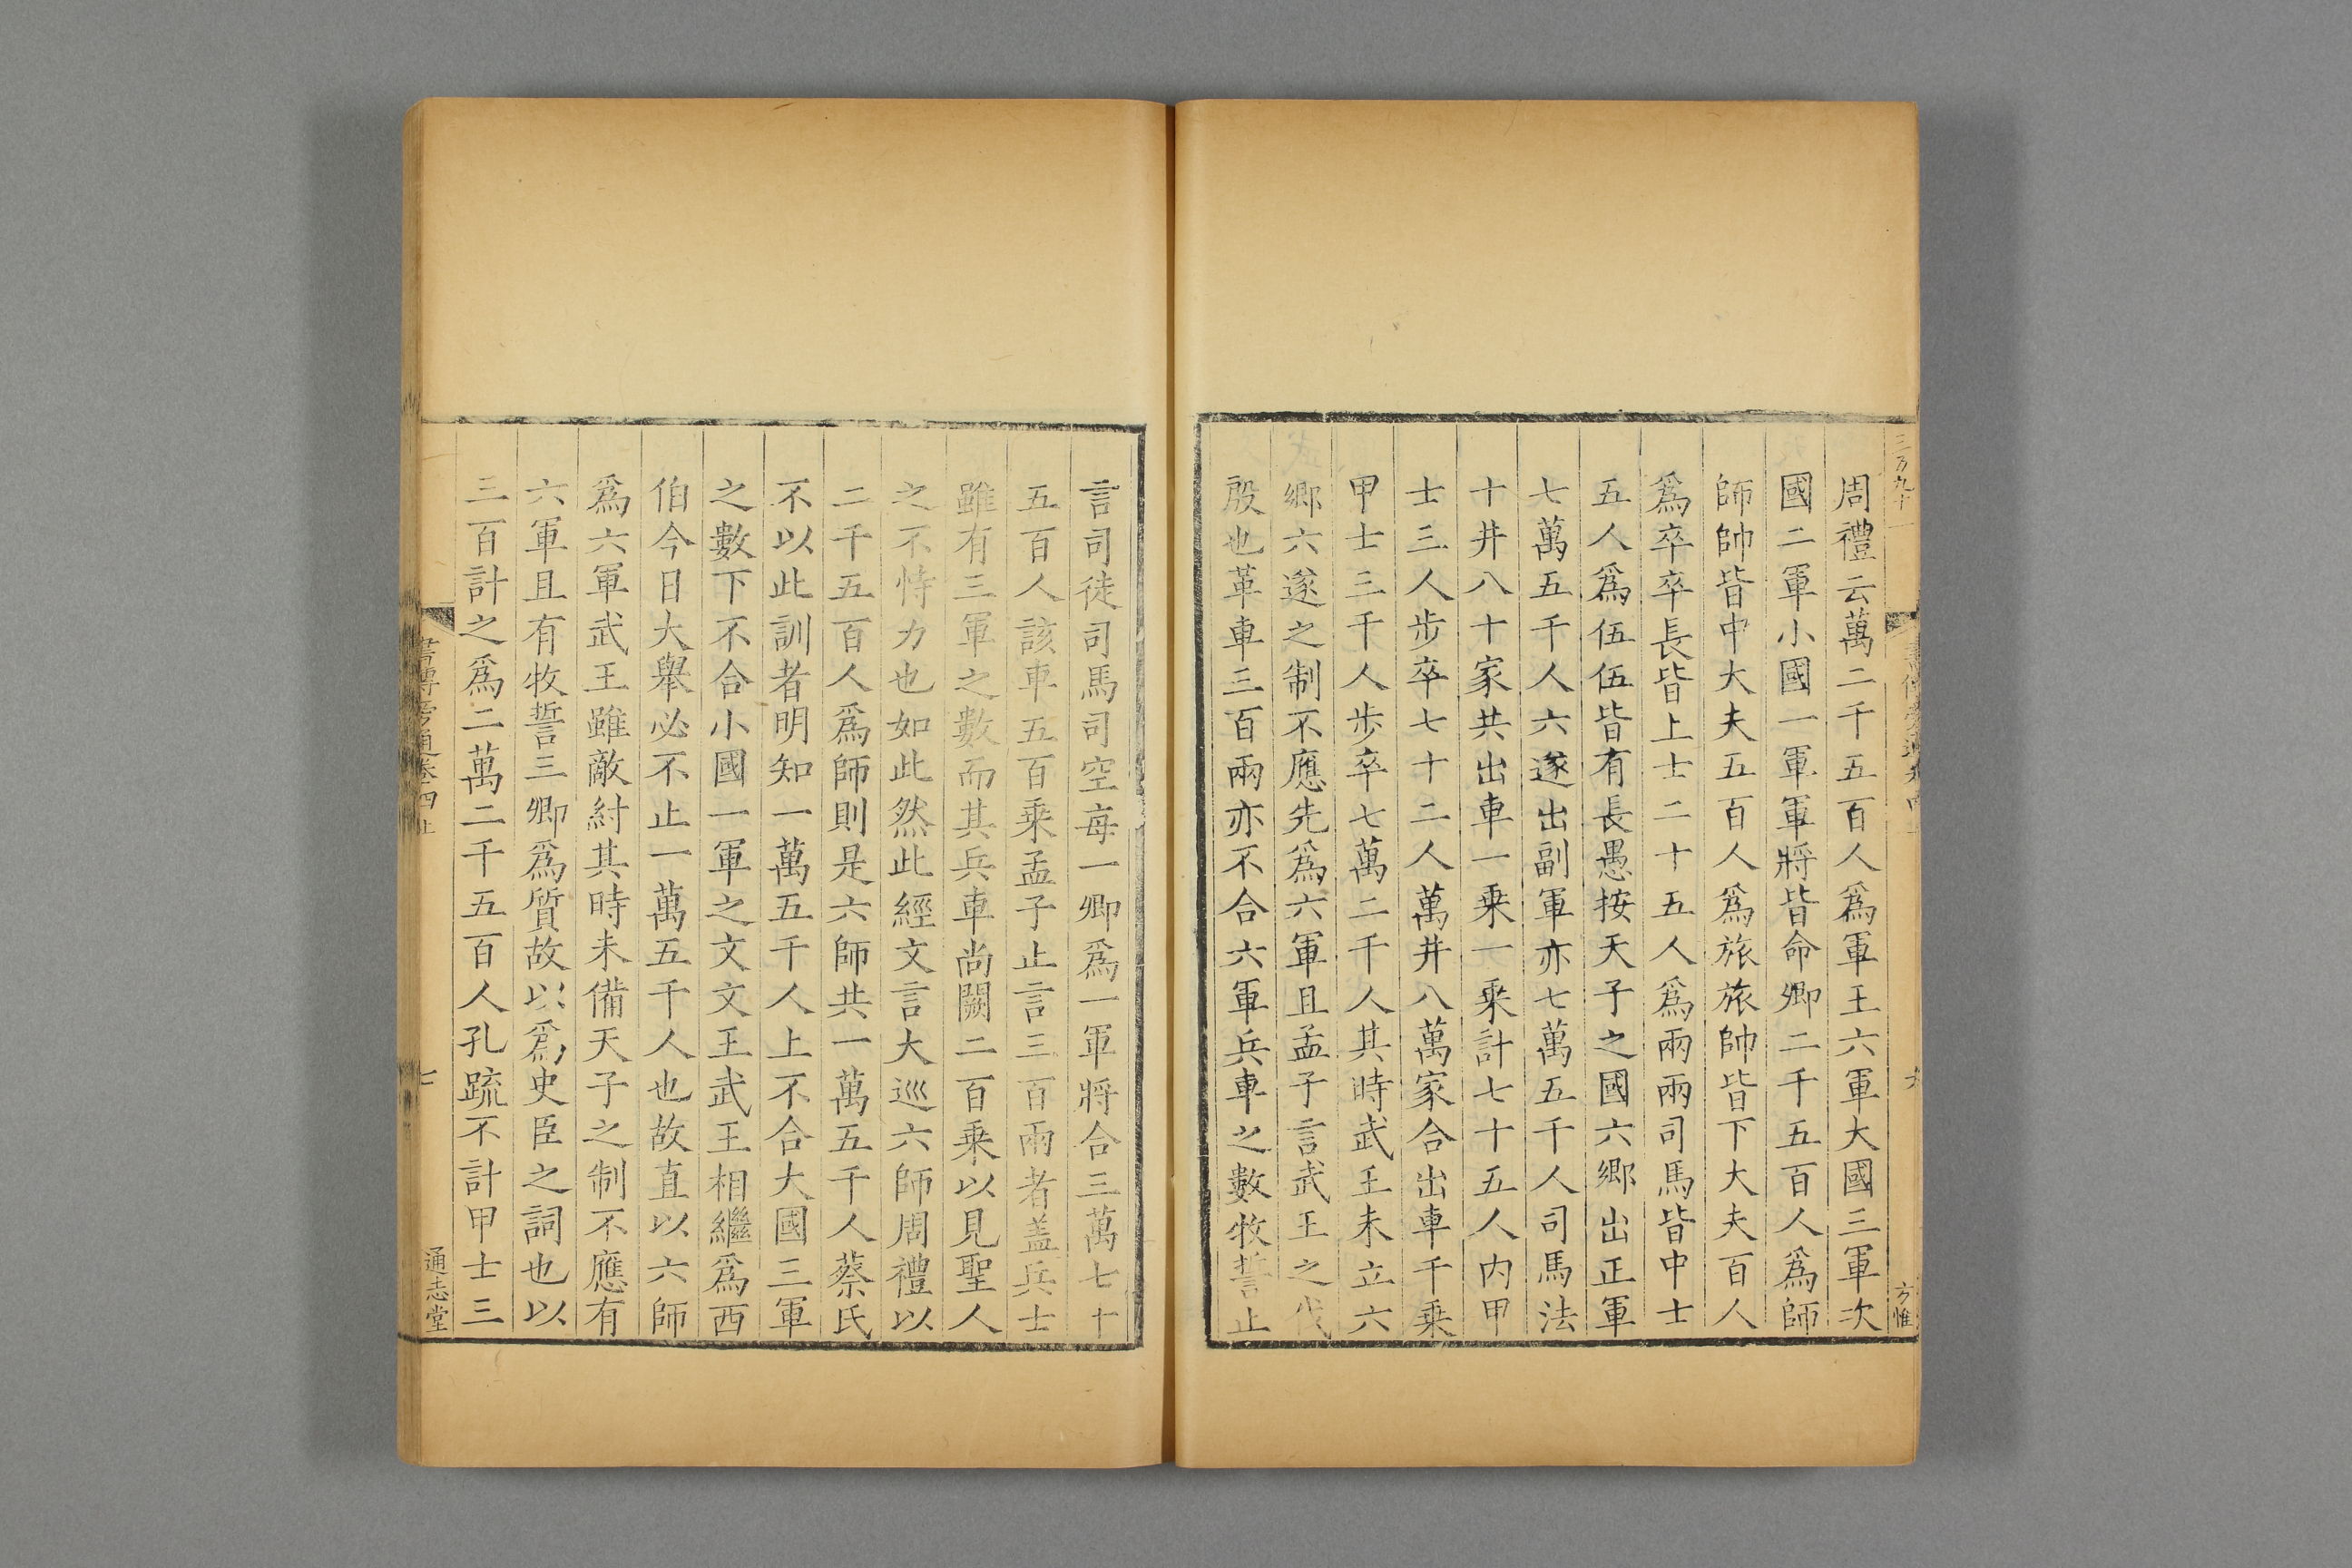 周禮云萬二千五百人爲軍王六軍大國三軍次
國二軍小國一軍軍將皆命卿二千五百人爲師
師帥皆中大夫五百人爲旅旅帥皆下大夫百人
爲卒卒長皆上士二十五人爲兩兩司馬皆中士
五人爲伍伍皆有長愚按天子之國六鄉出正軍
七萬五千人六遂出副軍亦七萬五千人司馬法
十井八十家共出車一乗一乗計七十五人内甲
士三人步卒七十二人萬井八萬家合出車千乗
甲士三千人步卒七萬二千人其時武王未立六
鄉六遂之制不應先爲六軍且孟子言武王之伐
殷也革車三百兩亦不合六軍兵車之數牧誓止
方惟
言司徒司馬司空每一卿爲一軍將合三萬七千
五百人該車五百乗孟子止言三百兩者盖兵士
雖有三軍之數而其兵車尚闕二百乗以見聖人
之不恃力也如此然此經文言大巡六師周禮以
二千五百人爲師則是六師共一萬五千人蔡氏
不以此訓者明知一萬五千人上不合大國三軍
之數下不合小國一軍之文文王武王相繼爲西
伯今日大舉必不止一萬五千人也故直以六師
爲六軍武王雖敵紂其時未備天子之制不應有
六軍且有牧誓三卿爲質故以爲史臣之詞也以
三百計之爲二萬二千五百人孔䟽不計甲士三
書傳旁通卷四上
七
通志堂